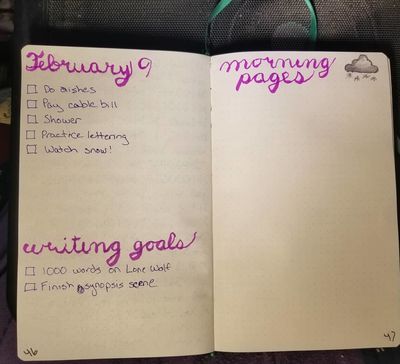 February 9
Do dishes
Pay cable bill
Shower
Practice lettering
Watch snow!
writing goals
1000 words on Lone Wolf
Finish synopsis scene
46
morning
pages
47